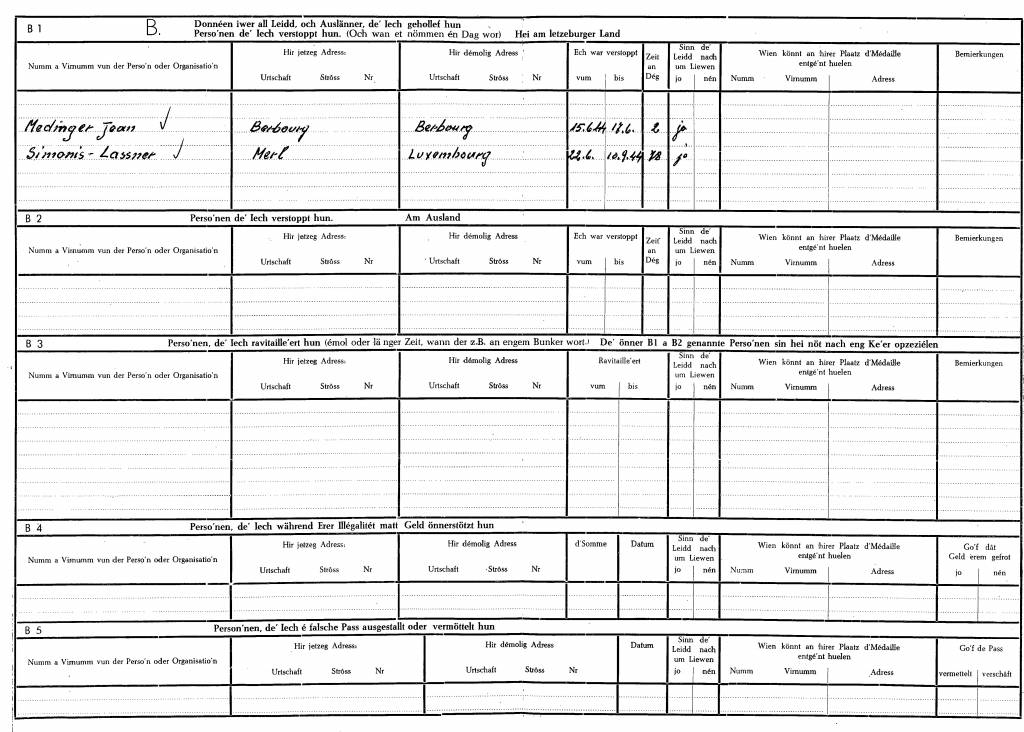 B 1 B. Donnéen iwer all Leidd, och Auslänner, de' Iech gehollef hun
Perso'nen de' Iech verstoppt hun. (Och wan et nömmen én Dag wor) Hei am letzeburger Land
Numm a Virnumm vun der Perso'n oder Organisatio'n
Hir jetzeg Adress:
Urtschaft Ströss Nr
Hir démolig Adress
Urtschaft Ströss Nr
Ech war verstoppt
vum bis
Zeit
an
Dég
Sinn de'
Leidd nach
um Liewen
jo nén
Wien könnt an hirer Plaatz d'Médaille
entgé'nt huelen
Numm Virnumm Adress
Bemierkungen
Medinger Jean Berbourg Berbourg 15.6.44 17.6. 2 jo
Simonis - Lassner Merl Luxembourg 22.6. 10.9.44 78 jo
B 2 Perso'nen de' Iech verstoppt hun. Am Ausland
Numm a Virnumm vun der Perso'n oder Organisatio'n
Hir jetzeg Adress:
Urtschaft Ströss Nr
Hir démolig Adress
Urtschaft Ströss Nr
Ech war verstoppt
vum bis
Zeit
an
Dég
Sinn de'
Leidd nach
um Liewen
jo nén
Wien könnt an hirer Plaatz d'Médaille
entgé'nt huelen
Numm Virnumm Adress
Bemierkungen
B 3 Perso'nen, de' Iech ravitaille'ert hun (émol oder länger Zeit, wann der z.B. an engem Bunker wort.) De' önner B1 a B2 genannte Perso'nen sin hei nöt nach eng Ke'er opzeziélen
Numm a Virnumm vun der Perso'n oder Organisatio'n
Hir jetzeg Adress:
Urtschaft Ströss Nr
Hir démolig Adress
Urtschaft Ströss Nr
Ravitaille'ert
vum bis
Sinn de'
Leidd nach
um Liewen
jo nén
Wien könnt an hirer Plaatz d'Médaille
entgé'nt huelen
Numm Virnumm Adress
Bemierkungen
B 4 Perso'nen, de' Iech während Erer Illégalitét matt Geld önnerstötzt hun
Numm a Virnumm vun der Perso'n oder Organisatio'n
Hir jetzeg Adress:
Urtschaft Ströss Nr
Hir démolig Adress
Urtschaft Ströss Nr
d'Somme
Datum
Sinn de'
Leidd nach
um Liewen
jo nén
Wien könnt an hirer Plaatz d'Médaille
entgé'nt huelen
Numm Virnumm Adress
Go'f dât
Geld erem gefrot
jo nén
B 5 Person'nen, de' Iech é falsche Pass ausgestallt oder vermöttelt hun
Numm a Virnumm vun der Perso'n oder Organisatio'n
Hir jetzeg Adress:
Urtschaft Ströss Nr
Hir démolig Adress
Urtschaft Ströss Nr
Datum
Sinn de'
Leidd nach
um Liewen
jo nén
Wien könnt an hirer Plaatz d'Médaille
entgé'nt huelen
Numm Virnumm Adress
Go'f de Pass
vermettelt verschäft